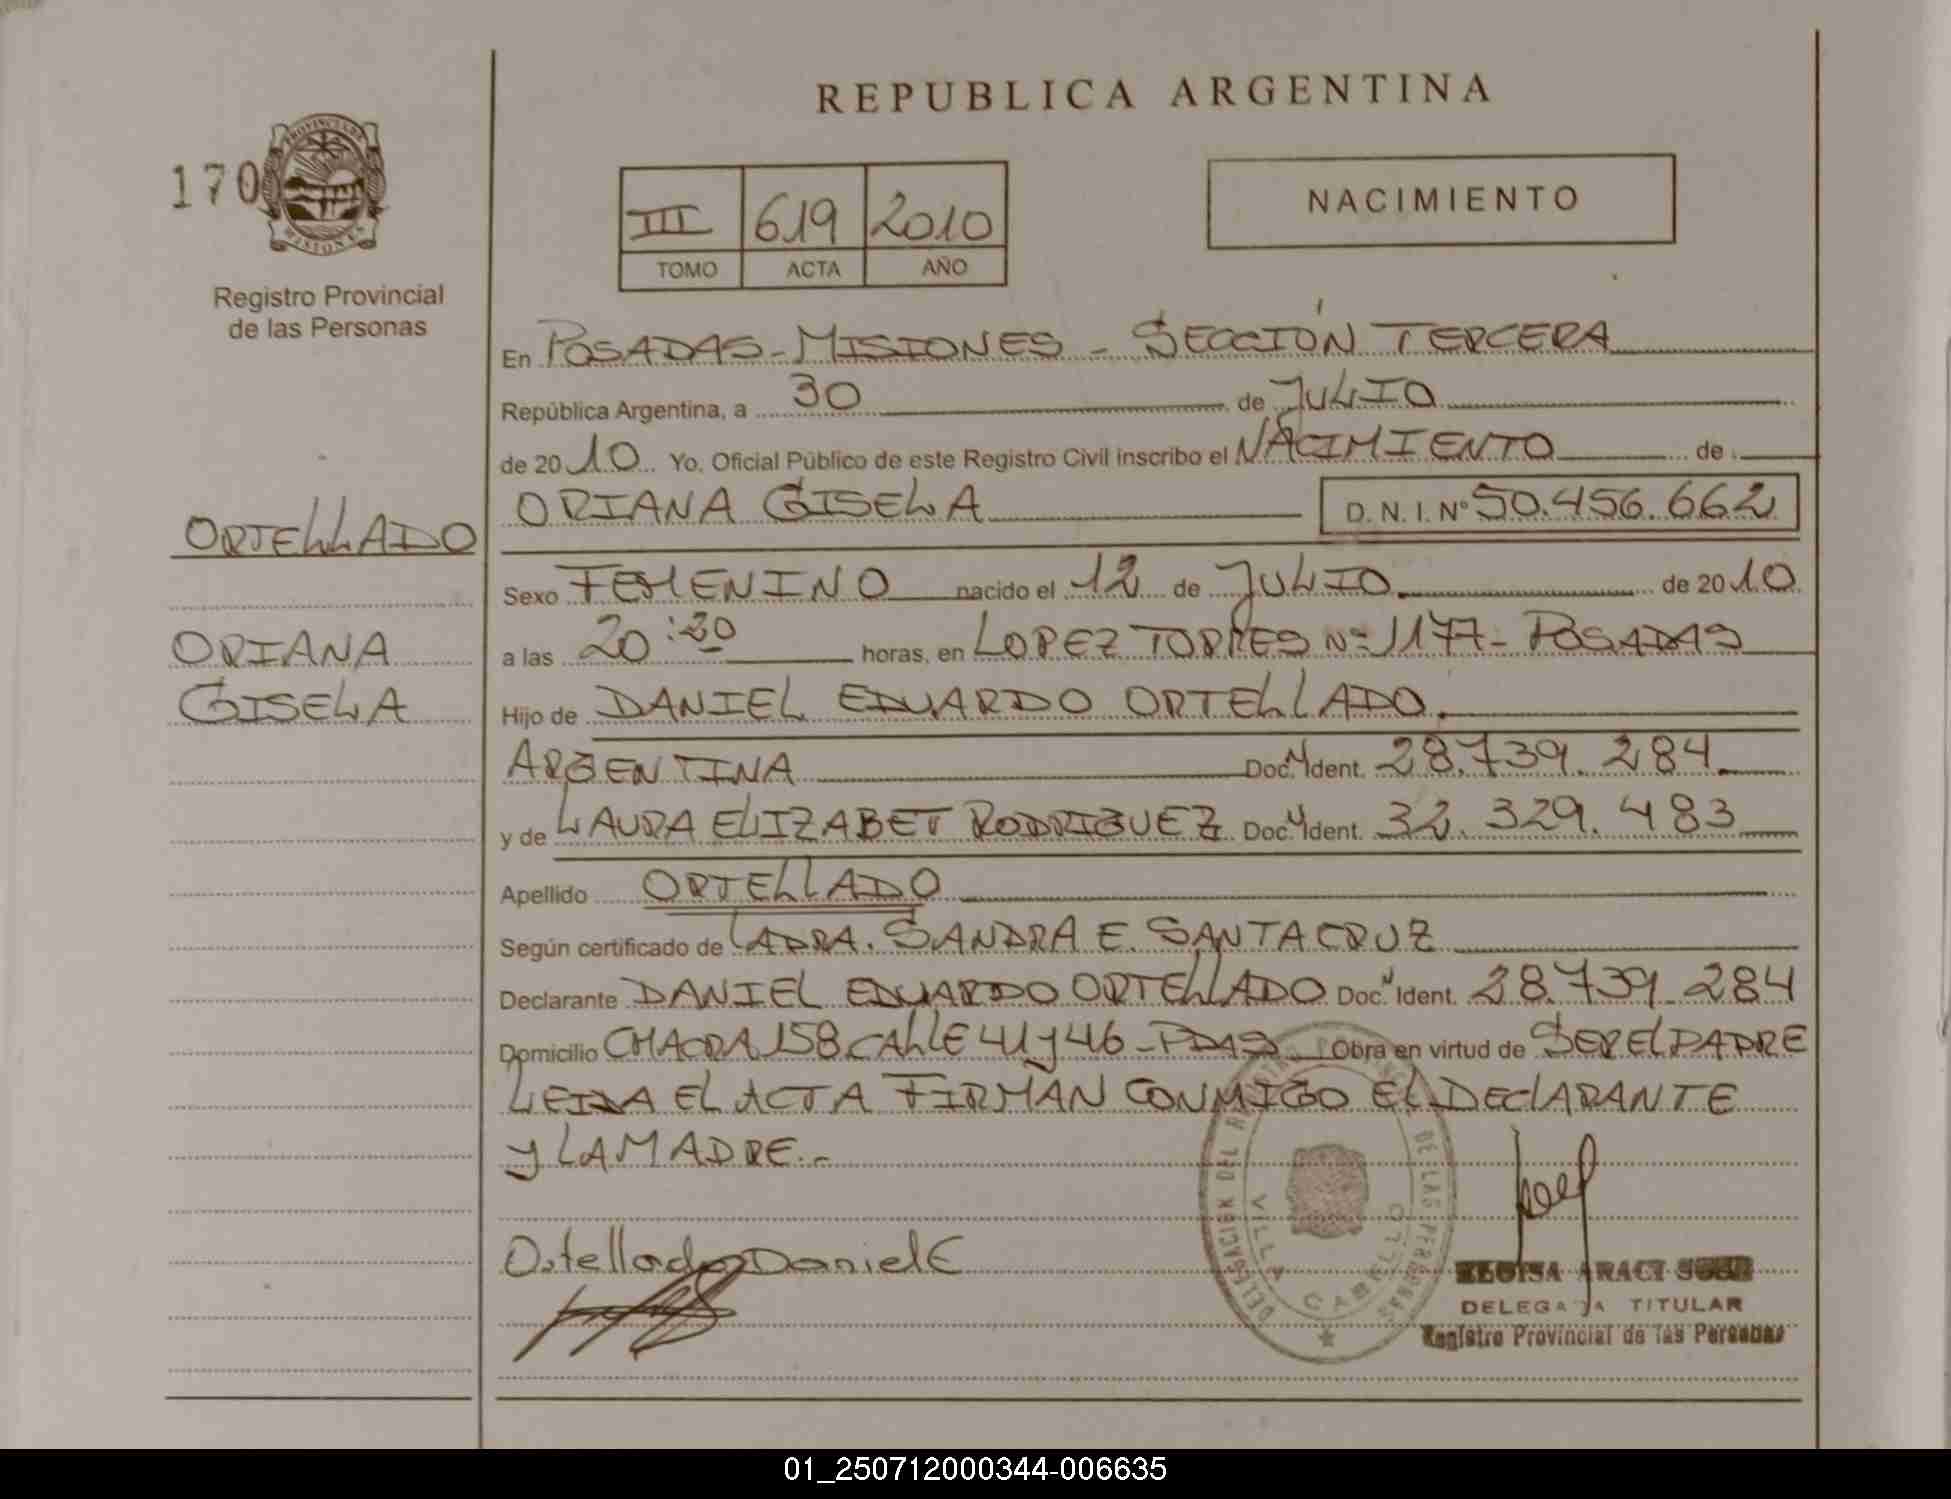 REPUBLICA ARGENTINA
170
PROVINCIA DE
MISIONES
Registro Provincial
de las Personas
III 619 2010
TOMO ACTA AÑO
NACIMIENTO
En POSADAS - MISIONES - SECCIÓN TERCERA
República Argentina, a 30 de JULIO
de 2010 Yo. Oficial Público de este Registro Civil inscribo el NACIMIENTO de
ORIANA GISELA D.N.I. Nº 50.456.662
ORTELLADO
ORIANA
GISELA
Sexo FEMENINO nacido el 12 de JULIO de 2010
a las 20: horas, en LOPEZ TORRES Nº 1177 - POSADAS
Hijo de DANIEL EDUARDO ORTELLADO
ARGENTINA Doc. Ident. 28.739.284
y de LAURA ELIZABET RODRIGUEZ Doc. Ident. 32.329.483
Apellido ORTELLADO
Según certificado de LA DRA. SANDRA E. SANTACRUZ
Declarante DANIEL EDUARDO ORTELLADO Doc. Ident. 28.739.284
Domicilio CHACRA 158 CALLE 41 y 46 - PDAS Obra en virtud de SER EL PADRE
LEIDA EL ACTA FIRMAN CONMIGO EL DECLARANTE
y LA MADRE.-
Ortellado Daniel E
DELEGACIÓN DEL REGISTRO PROVINCIAL DE LAS PERSONAS
VILLA CABELLO
ARACI
DELEGADA TITULAR
Registro Provincial de las Personas
01_250712000344-006635